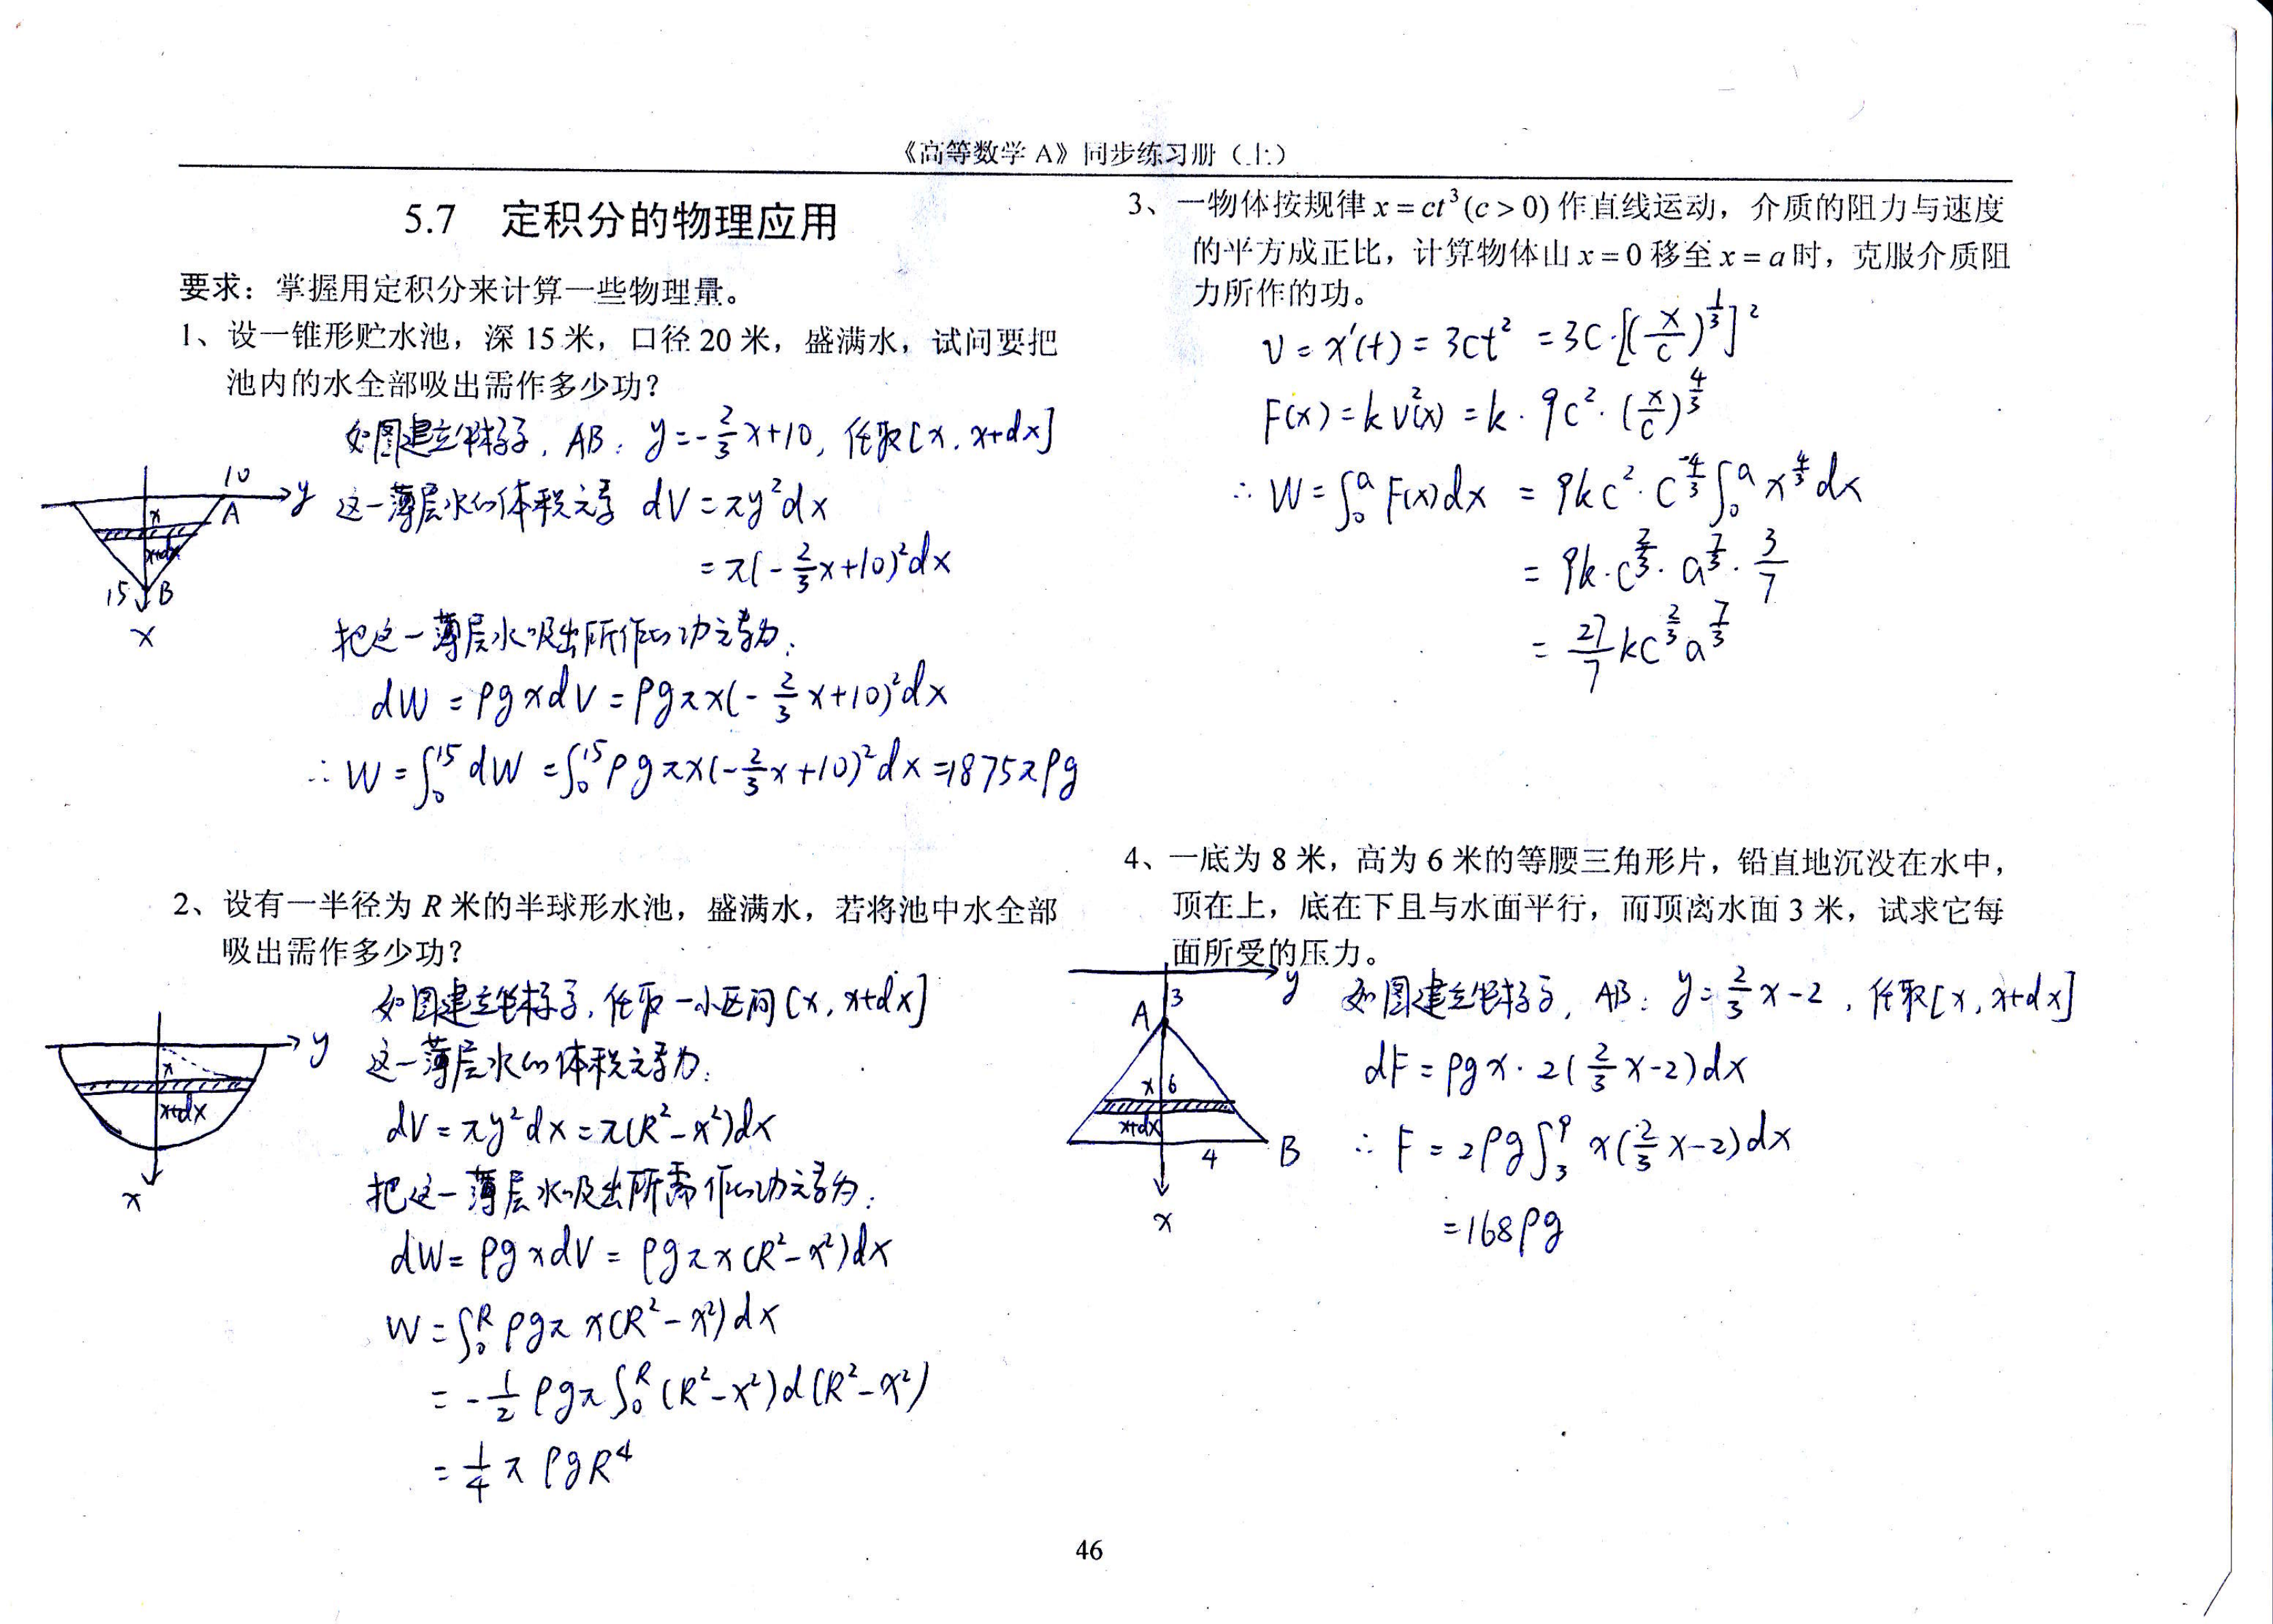 《高等数学 A》同步练习册（上）
5.7 定积分的物理应用
要求：掌握用定积分来计算一些物理量。
1、设一锥形贮水池，深 15 米，口径 20 米，盛满水，试问要把
池内的水全部吸出需作多少功？
如图建立坐标系, AB: y=-2/3 x+10, 任取[x, x+dx]
这一薄层水的体积元素 dV=πy²dx
=π(-2/3 x+10)²dx
把这一薄层水吸出所作的功元素为:
dW=ρgxdV=ρgπx(-2/3 x+10)²dx
∴W=∫₀¹⁵dW=∫₀¹⁵ρgπx(-2/3 x+10)²dx=1875πρg
10
y
A
x
x+dx
15
B
x
2、设有一半径为 R 米的半球形水池，盛满水，若将池中水全部
吸出需作多少功？
如图建立坐标系, 任取一小区间[x, x+dx]
这一薄层水的体积元素为:
dV=πy²dx=π(R²-x²)dx
把这一薄层水吸出所需作的功元素为:
dW=ρgxdV=ρgπx(R²-x²)dx
W=∫₀ᴿρgπx(R²-x²)dx
=-1/2 ρgπ∫₀ᴿ(R²-x²)d(R²-x²)
=1/4 πρgR⁴
y
x
x+dx
x
46
3、一物体按规律 x=ct³(c>0) 作直线运动，介质的阻力与速度
的平方成正比，计算物体由 x=0 移至 x=a 时，克服介质阻
力所作的功。
v=x'(t)=3ct²=3c·[(x/c)^(1/3)]²
F(x)=kv²(x)=k·9c²·(x/c)^(4/3)
∴W=∫₀ᵃF(x)dx=9kc²·c^(-4/3)∫₀ᵃx^(4/3)dx
=9k·c^(2/3)·a^(7/3)·3/7
=27/7 kc^(2/3)a^(7/3)
4、一底为 8 米，高为 6 米的等腰三角形片，铅直地沉没在水中，
顶在上，底在下且与水面平行，而顶离水面 3 米，试求它每
面所受的压力。
如图建立坐标系, AB: y=2/3 x-2, 任取[x, x+dx]
dF=ρgx·2(2/3 x-2)dx
∴F=2ρg∫₃⁹x(2/3 x-2)dx
=168ρg
y
3
A
x
6
x+dx
4
B
x